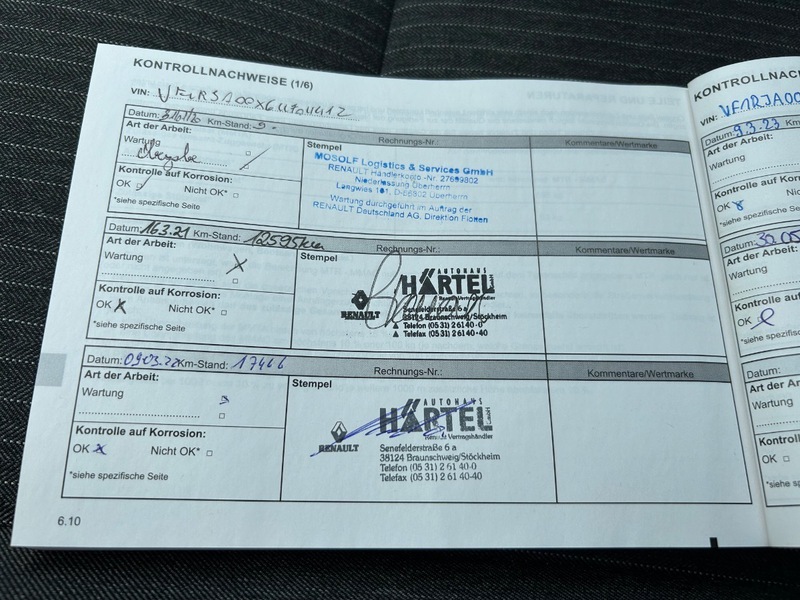 KONTROLLNACHWEISE (1/6)
VIN:
Datum: Km-Stand:
Rechnungs-Nr.:
Kommentare/Wertmarke
Art der Arbeit:
Wartung
Kontrolle auf Korrosion:
OK Nicht OK*
*siehe spezifische Seite
Stempel
MOSOLF Logistics & Services GmbH
RENAULT Händlerkonto -Nr. 27699802
Niederlassung Überherrn
Langwies 101, D-66802 Überherrn
Wartung durchgeführt im Auftrag der
RENAULT Deutschland AG, Direktion Flotten
Datum: 16.3.21 Km-Stand: 12595km
Rechnungs-Nr.:
Kommentare/Wertmarke
Art der Arbeit:
Wartung X
Kontrolle auf Korrosion:
OK X Nicht OK*
*siehe spezifische Seite
Stempel
AUTOHAUS
HÄRTEL GMBH
Renault Vertragshändler
RENAULT
Senefelderstraße 6 a
38124 Braunschweig/Stöckheim
Telefon (05 31) 2 61 40-0
Telefax (05 31) 2 61 40-40
Datum: 09.03.22 Km-Stand: 17466
Rechnungs-Nr.:
Kommentare/Wertmarke
Art der Arbeit:
Wartung
Kontrolle auf Korrosion:
OK x Nicht OK*
*siehe spezifische Seite
Stempel
AUTOHAUS
HÄRTEL GMBH
Renault Vertragshändler
RENAULT
Senefelderstraße 6 a
38124 Braunschweig/Stöckheim
Telefon (05 31) 2 61 40-0
Telefax (05 31) 2 61 40-40
6.10
KONTROLLNACH
VIN: VF1RJA00
Datum: 9.3.23 Km
Art der Arbeit:
Wartung
Kontrolle auf Korros
OK
*siehe spezifische S
Datum: 30.05
Art der Arbei
Wartung
Kontrolle auf
OK
*siehe spezifi
Datum:
Art der Arb
Wartung
Kontrolle
OK
*siehe sp